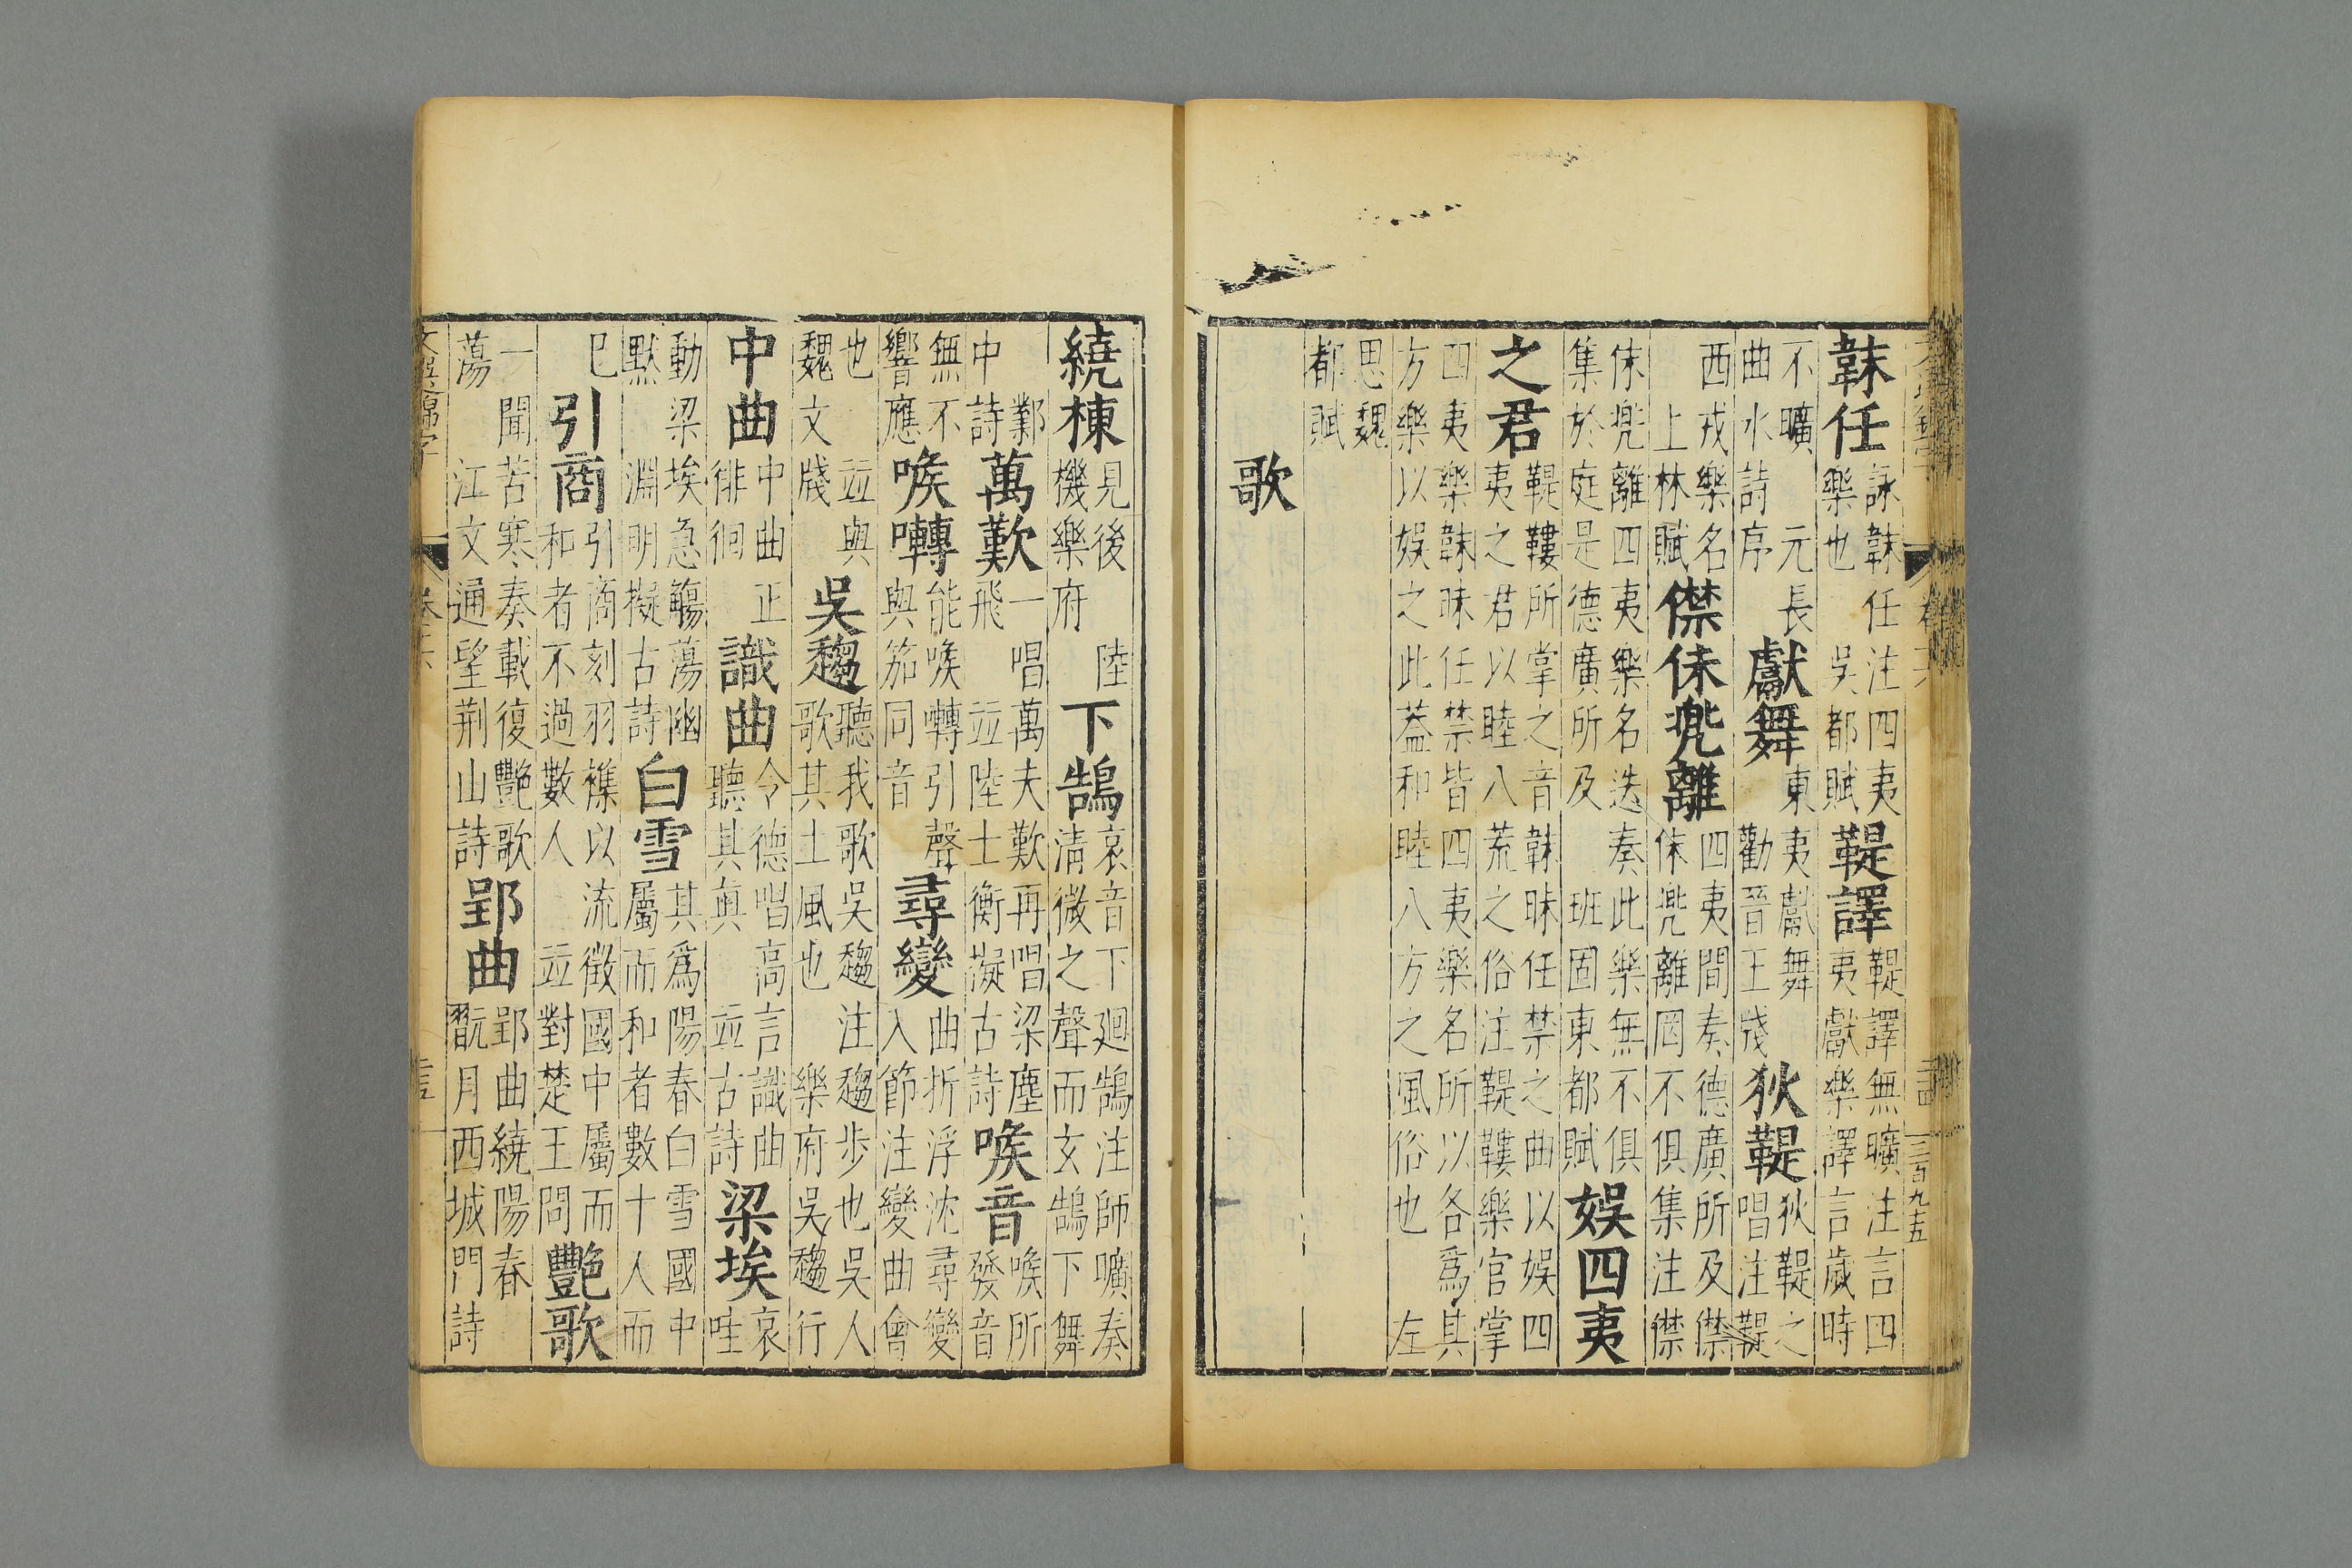 韎任詠韎任注四夷樂也吳都賦鞮譯鞮譯無曠注言四夷獻樂譯言歲時
不曠元長曲水詩序獻舞東夷獻舞勸晉王牋狄鞮狄鞮之唱注鞮
西戎樂名上林賦僸佅兜離四夷間奏德廣所及僸佅兜離罔不俱集注僸
佅兜離四夷樂名迭奏此樂無不俱集於庭是德廣所及班固東都賦娛四夷
之君鞮鞻所掌之音韎昧任禁之曲以娛四夷之君以睦八荒之俗注鞮鞻樂官掌
四夷樂韎昧任禁皆四夷樂名所以各爲其方樂以娛之此蓋和睦八方之風俗也左
思魏都賦
歌
三百九五
繞棟見後陸機樂府下鵠哀音下廻鵠注師曠奏清徵之聲而玄鵠下舞
中鄴詩萬歎一唱萬夫歎再唱梁塵飛並陸士衡擬古詩喉音喉所發音
無不響應喉囀能喉囀引聲與笳同音尋變曲折浮沈尋變入節注變曲會
也並與魏文牋吳趨聽我歌吳趨注趨步也吳人歌其土風也樂府吳趨行
中曲中曲正徘徊識曲令德唱高言識曲聽其眞並古詩梁埃哀唱
動梁埃急觴蕩幽默淵明擬古詩白雪其爲陽春白雪國中屬而和者數十人而
已引商引商刻羽襍以流徵國中屬而和者不過數人並對楚王問艷歌
一聞苦寒奏載復艷歌蕩江文通望荊山詩郢曲郢曲繞陽春翫月西城門詩